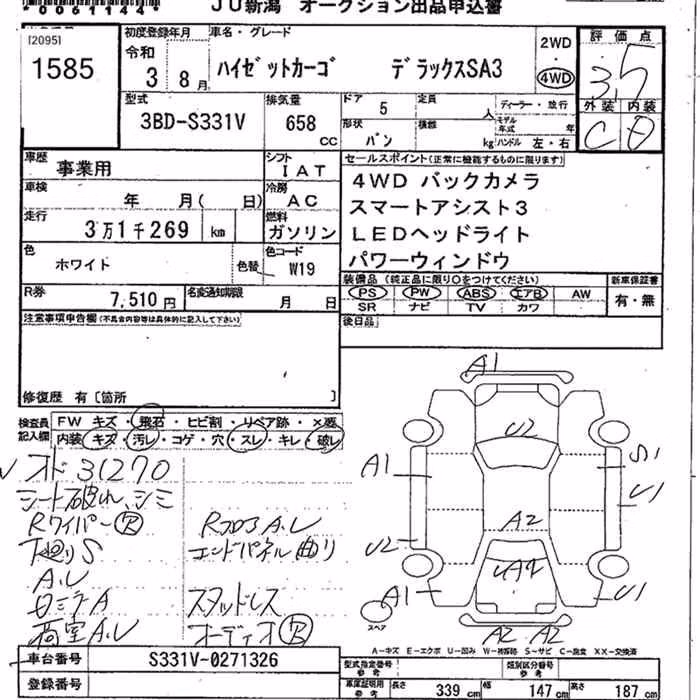 *0061144*
JU新潟 オークション出品申込書
[2095]
1585
初度登録年月
令和
3 8月
車名・グレード
ハイゼットカーゴ デラックスSA3
2WD
4WD
評価点
3.5
外装 内装
C
型式
3BD-S331V
排気量
658 cc
ドア 5
定員 人
形状 バン
積載 kg
ディーラー・並行
モデル年式 年
ハンドル 左・右
車歴 事業用
シフト IAT
車検 年 月( 日)
冷房 AC
走行 3万1千269 km
燃料 ガソリン
色 ホワイト
色替
色コード W19
R券 7,510円
名変通知期限 月 日
セールスポイント(正常に機能するものに限ります)
4WD バックカメラ
スマートアシスト3
LEDヘッドライト
パワーウィンドウ
装備品(純正品に限り○をつけてください)
PS PW ABS エアB AW
SR ナビ TV カワ
新車保証書
有・無
後日品
注意事項申告欄(不具合内容等は具体的に記入して下さい)
修復歴 有[箇所 ]
検査員記入欄
FW キズ・飛石・ヒビ割・リペア跡・X要
内装 キズ・汚レ・コゲ・穴・スレ・キレ・破レ
オド31270
シート破れ、シミ
Rワイパー R
下廻りS
A.U
ロミテA
荷室A.U
RフロアA.U
エンドパネル曲り
スタッドレス
オーディオR
A1
U2
A1
S1
U1
U2
A2
UA4
A1
U1
A2 A2
スペア
A-キズ E-エクボ U-凹み W-補修跡 S-サビ C-腐食 XX-交換済
車台番号 S331V-0271326
登録番号
型式指定番号 参考
類別区分番号 参考
車庫証明用 参考
長さ 339 cm
幅 147 cm
高さ 187 cm